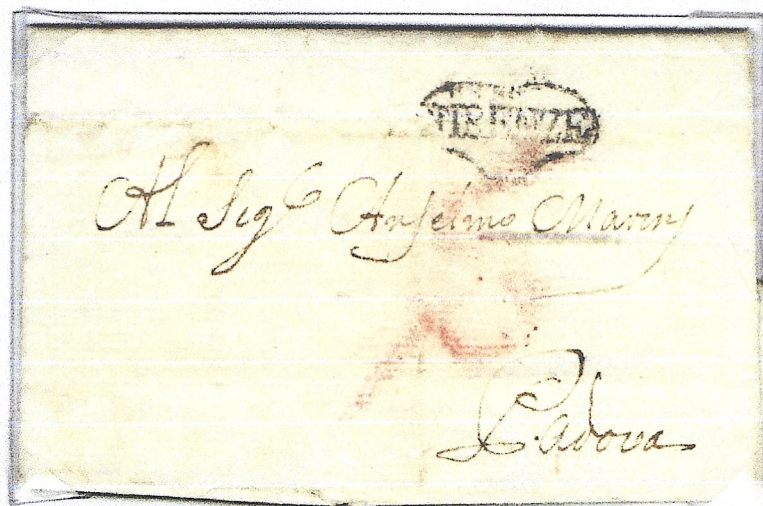 FIRENZE
Al Sig.e Anselmo Marinj
Padova